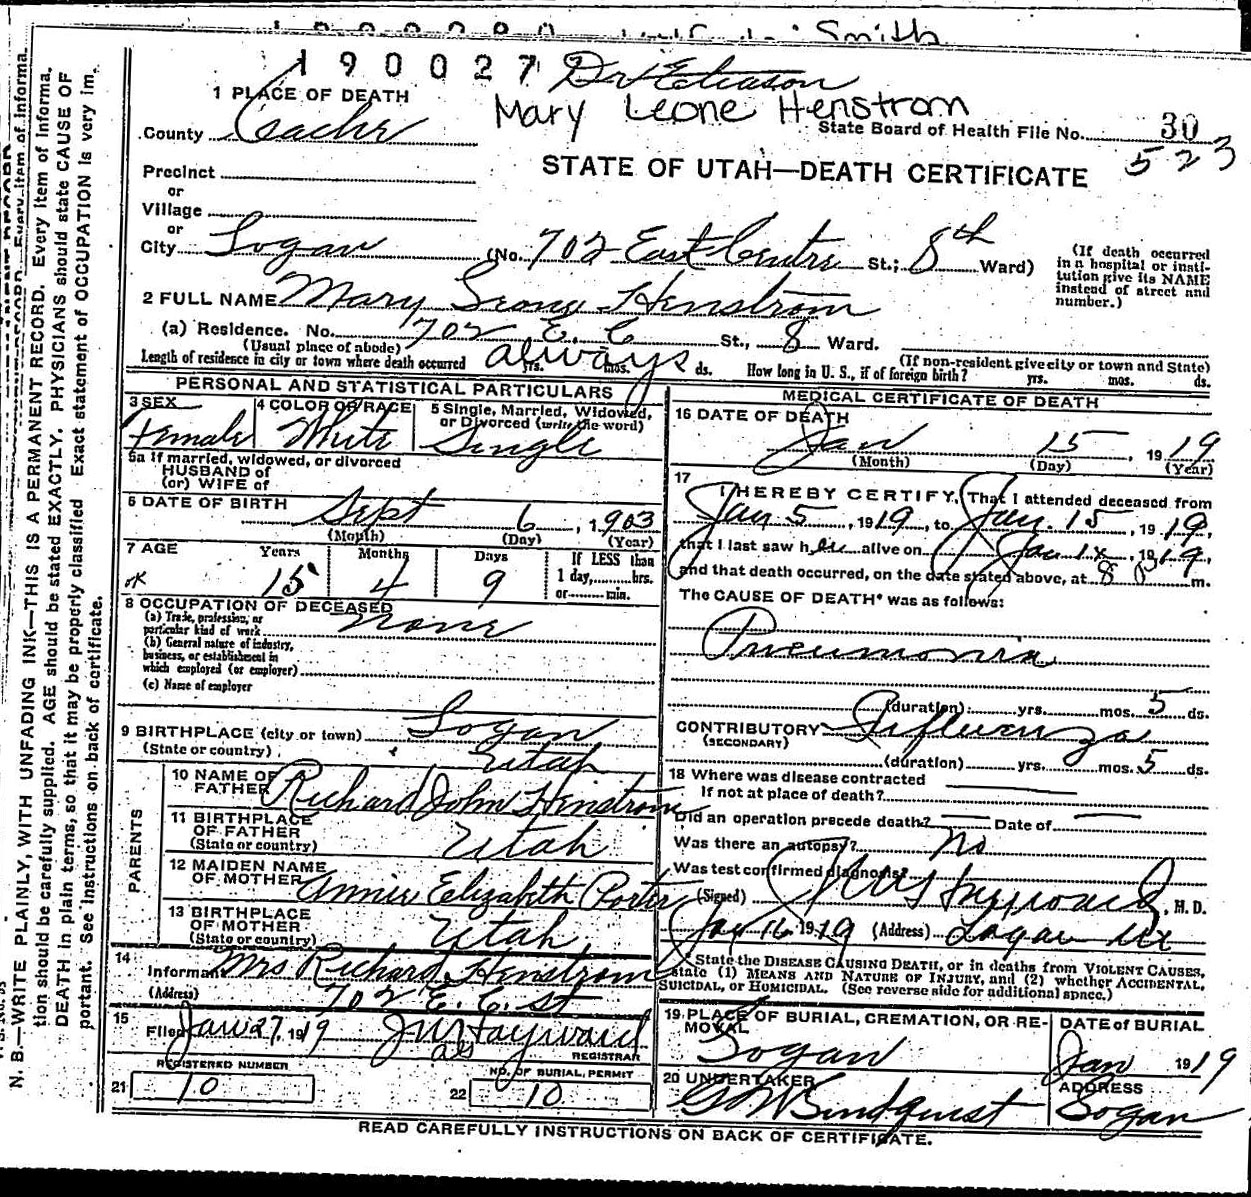 Smith
190027 Dr Eliason
Mary Leone Henstrom
1 PLACE OF DEATH
County Cache
State Board of Health File No. 30
523
STATE OF UTAH—DEATH CERTIFICATE
Precinct
or
Village
or
City Logan (No. 702 East Centre St.; 8th Ward)
(If death occurred in a hospital or institution give its NAME instead of street and number.)
2 FULL NAME Mary Leony Henstrom
(a) Residence. No. 702 E. C St., 8 Ward.
(Usual place of abode) (If non-resident give city or town and State)
Length of residence in city or town where death occurred always yrs. mos. ds. How long in U. S., if of foreign birth? yrs. mos. ds.
PERSONAL AND STATISTICAL PARTICULARS
3 SEX Female
4 COLOR OR RACE White
5 Single, Married, Widowed, or Divorced (write the word) Single
5a If married, widowed, or divorced
HUSBAND of
(or) WIFE of
6 DATE OF BIRTH Sept 6, 1903
(Month) (Day) (Year)
7 AGE Years Months Days If LESS than
OK 15 4 9 1 day, hrs.
or min.
8 OCCUPATION OF DECEASED none
(a) Trade, profession, or
particular kind of work
(b) General nature of industry,
business, or establishment in
which employed (or employer)
(c) Name of employer
9 BIRTHPLACE (city or town) Logan
(State or country) Utah
PARENTS
10 NAME OF FATHER Richard John Henstrom
11 BIRTHPLACE OF FATHER (State or country) Utah
12 MAIDEN NAME OF MOTHER Annie Elizabeth Porter
13 BIRTHPLACE OF MOTHER (State or country) Utah
14 Informant Mrs Richard Henstrom
(Address) 702 E. C. st
15 Filed Jan 27, 1919 JW Hayward
REGISTRAR
REGISTERED NUMBER
21 10
NO. OF BURIAL PERMIT
22 10
MEDICAL CERTIFICATE OF DEATH
16 DATE OF DEATH
Jan 15, 1919
(Month) (Day) (Year)
17 I HEREBY CERTIFY, That I attended deceased from
Jan 5, 1919, to Jan. 15, 1919,
that I last saw her alive on Jan 1, 1919,
and that death occurred, on the date stated above, at 8 P m.
The CAUSE OF DEATH* was as follows:
Pneumonia
(duration) yrs. mos. 5 ds.
CONTRIBUTORY Influenza
(SECONDARY)
(duration) yrs. mos. 5 ds.
18 Where was disease contracted
If not at place of death?
Did an operation precede death? — Date of —
Was there an autopsy? No
Was test confirmed diagnosis?
(Signed) JW Hayward, M.D.
Jan 16 1919 (Address) Logan Ut
*State the DISEASE CAUSING DEATH, or in deaths from VIOLENT CAUSES,
state (1) MEANS AND NATURE OF INJURY, and (2) whether ACCIDENTAL,
SUICIDAL, OR HOMICIDAL. (See reverse side for additional space.)
19 PLACE OF BURIAL, CREMATION, OR REMOVAL
Logan
DATE of BURIAL
Jan 1919
20 UNDERTAKER
G W Lindquist
ADDRESS
Logan
READ CAREFULLY INSTRUCTIONS ON BACK OF CERTIFICATE.
N. B.—WRITE PLAINLY, WITH UNFADING INK—THIS IS A PERMANENT RECORD. Every item of informa-
tion should be carefully supplied. AGE should be stated EXACTLY. PHYSICIANS should state CAUSE OF
DEATH in plain terms, so that it may be properly classified. Exact statement of OCCUPATION is very im-
portant. See instructions on back of certificate.